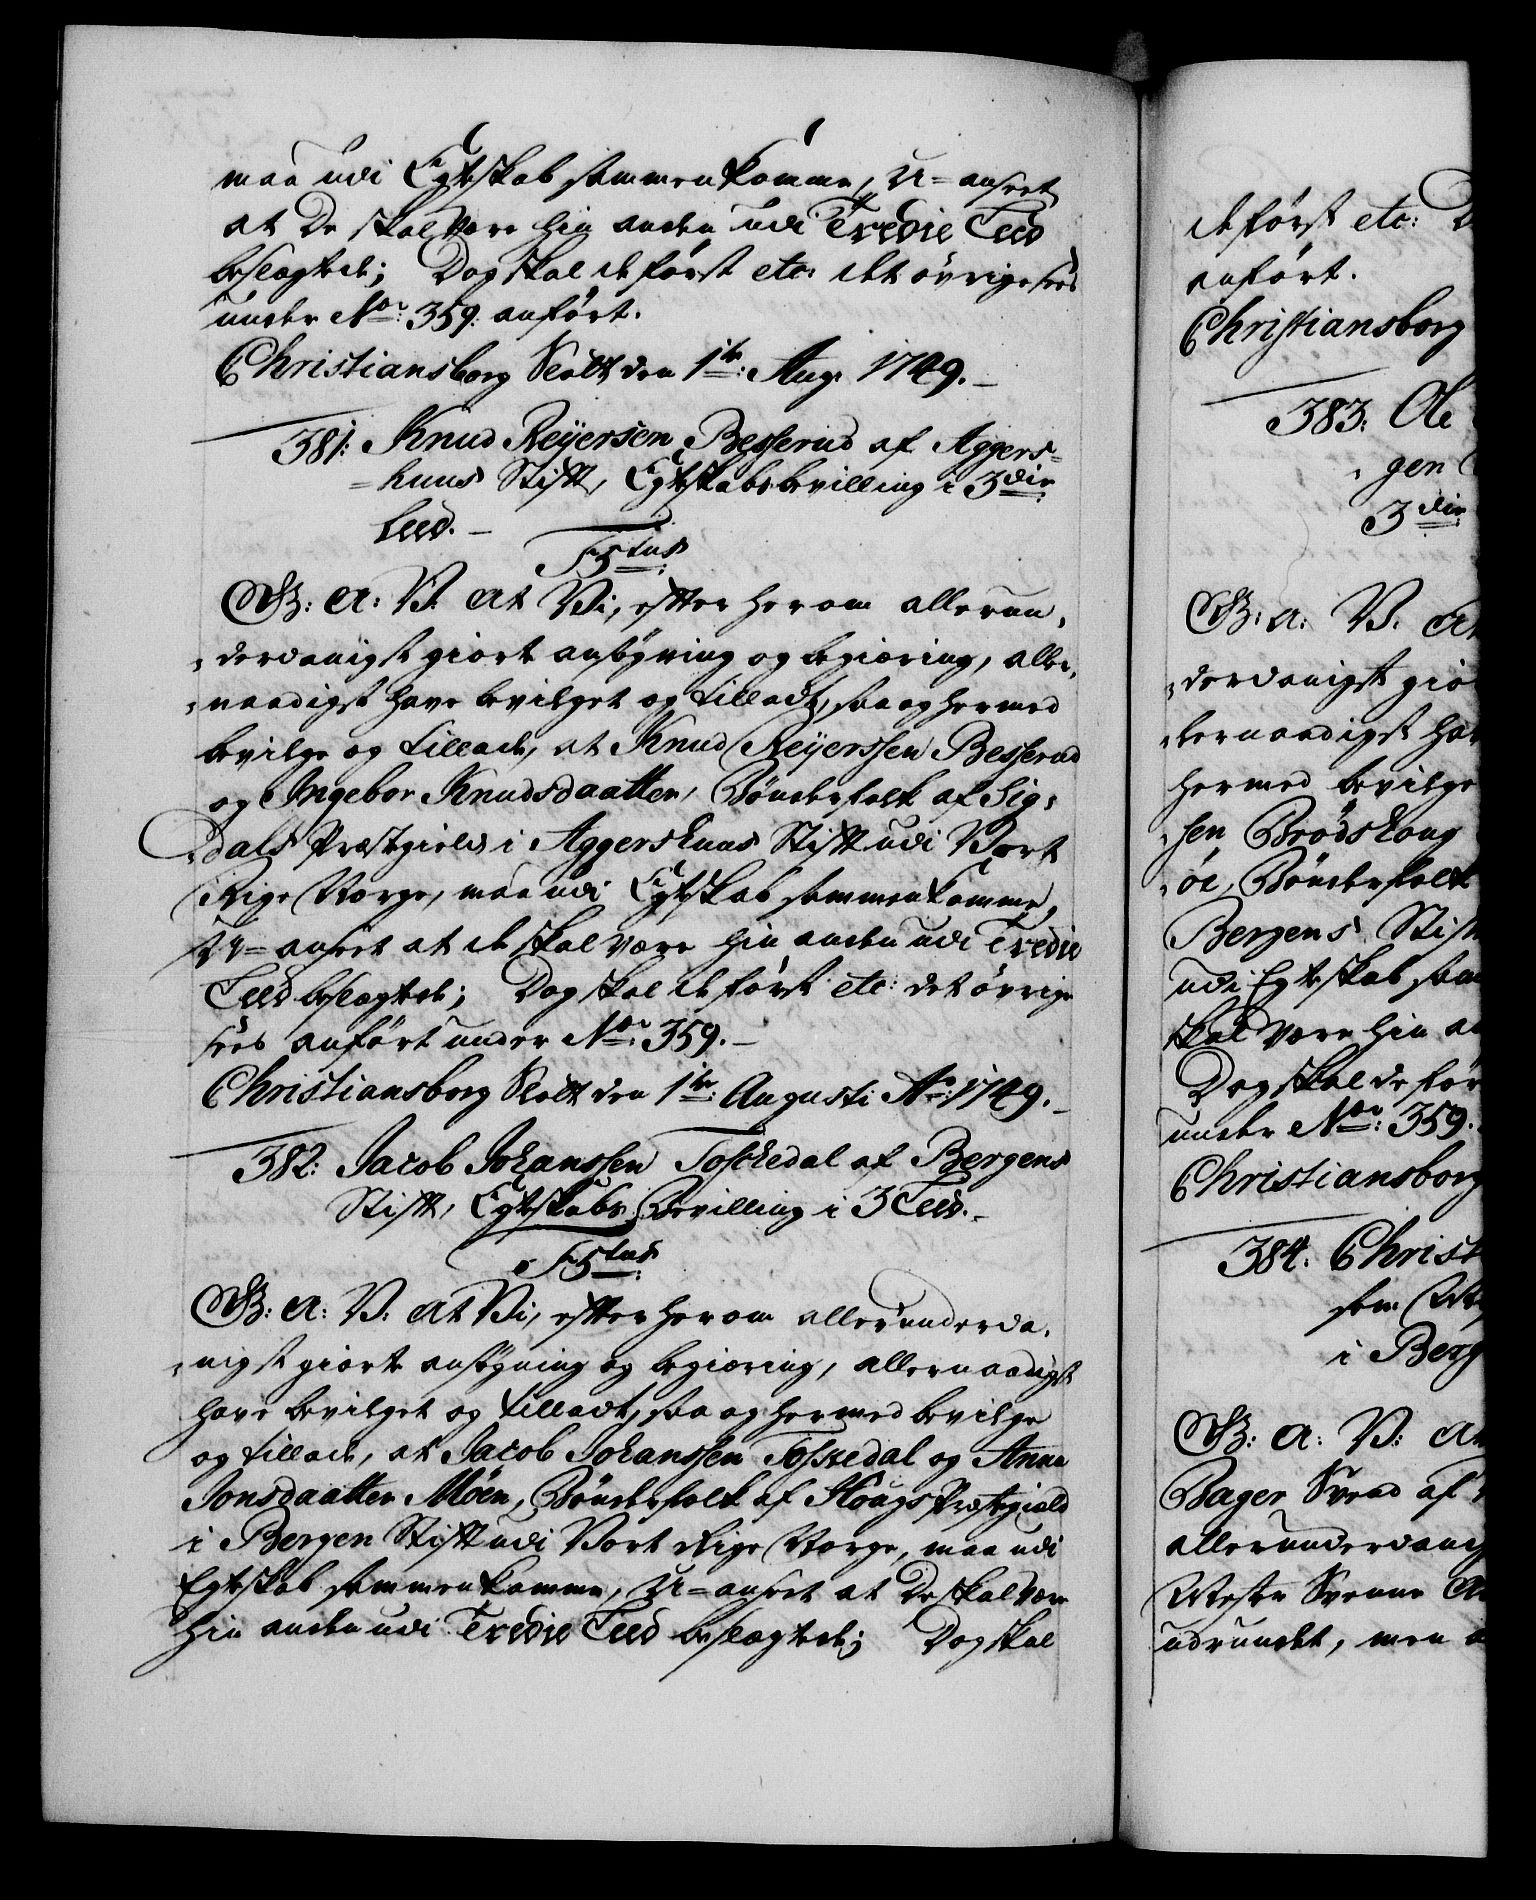 maa udi Egteskab sammenkomme, U=anseet
at De skal være hin anden udi Tredie Leed
beslægtede; Dog skal de først etc: det övrige sees
under No: 359. anfört.
Christiansborg Slott den 1te: Aug: 1749.
381: Knud Reÿersen Besserud af Aggers=
=huus Stift, Egteskabsbevilling i 3die
Leed.
F5tus
G: A: V: At Vi, efter herom allerun,
,derdanigst giort ansögning og begiæring, aller,
,naadigst have bevilget og tilladt, saa og hermed
bevilge og tillade, at Knud Reÿerssen Besserud
og Ingebor Knudsdaatter, Bönderfolk af Sig,
,dals Præstegield i Aggershuus Stift udi Vort
Rige Norge, maa udi Egteskab sammenkomme,
U=anseet at de skal være hin anden udi Tredie
Leed beslægtede; Dog skal de först etc: det övrige
sees anfört under No: 359.
Christiansborg Slott den 1te: Augusti Ao: 1749.
382: Jacob Johanssen Tosckedal af Bergens
Stift, Egteskabs Bevilling i 3 Leed.
F5tus
G: A: V: At Vi, efter herom allerunderda,
,nigst giorte ansögning og begiæring, allernaadigst
have bevilget og tilladt, saa og hermed bevilge
og tillade, at Jacob Johanssen Tosskedal og Anna
Jonsdaatter Möen, Bönderfolk af Hougs Præstegield
i Bergen Stift udi Vort Rige Norge, maa udi
Egteskab sammenkomme, U=anseet at De skal være
hin anden udi Tredie Leed beslægtede; Dog skal
de först etc: D
anfört.
Christiansborg
383: Ole
gen
3die
G: A: V: At
,derdanigst gio
,lernaadigst hav
hermed bevilge
,sen Brödskoug
,öe, Bönderfolk
Bergens Stift
udi Egteskab sam
skal være hin an
Dog skal de för
under No: 359.
Christiansborg
384. Christ
sen
i Berg
G: A: V: At
Bager Svend af
allerunderdanig
Mester Svenne
udrundet, men